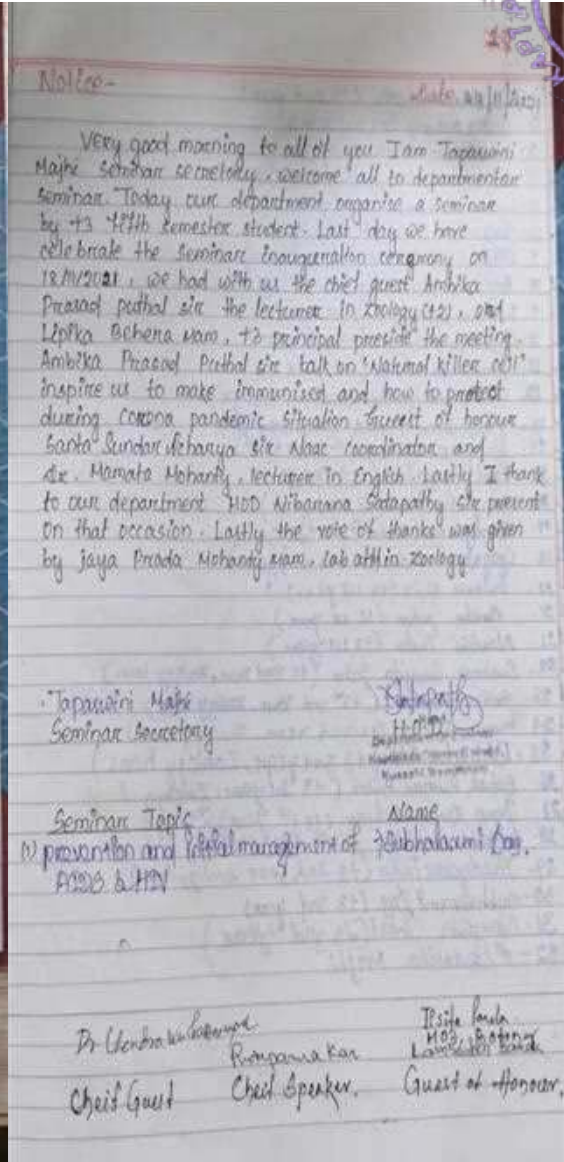 17
Notice-
Date
Very good morning to all of you I am Tapaswini
Majhi seminar secretary, welcome all to departmental
seminar. Today our department organise a seminar
by +3 fifth semester student. Last day we have
celebrate the seminar inauguration ceremony on
18/11/2021, we had with us the chief guest Ambika
Prasad puthal sir the lecturer in Zoology (+2), and
Lipika Behera Mam, +3 principal preside the meeting.
Ambika Prasad Puthal sir talk on "Natural killer cell"
inspire us to make immunised and how to protect
during corona pandemic situation Guest of honour
Santa Sundar Acharya sir Naac coordinator and
dr. Mamata Mohanty, lecturer in English. Lastly I thank
to our department HOD Nibarana Satapathy sir present
on that occasion. Lastly the vote of thanks was given
by jaya Prada Mohanty Mam, Lab in Zoology
Tapaswini Majhi
Seminar Secretary
H.O.D
Seminar Topic Name
(1) prevention and management of Subhalaxmi Dag.
AIDS & HIV
Dr
Ipsita Panda
HOD, Botony
Kar
Cheif Guest Cheif Speaker. Guest of Honour.